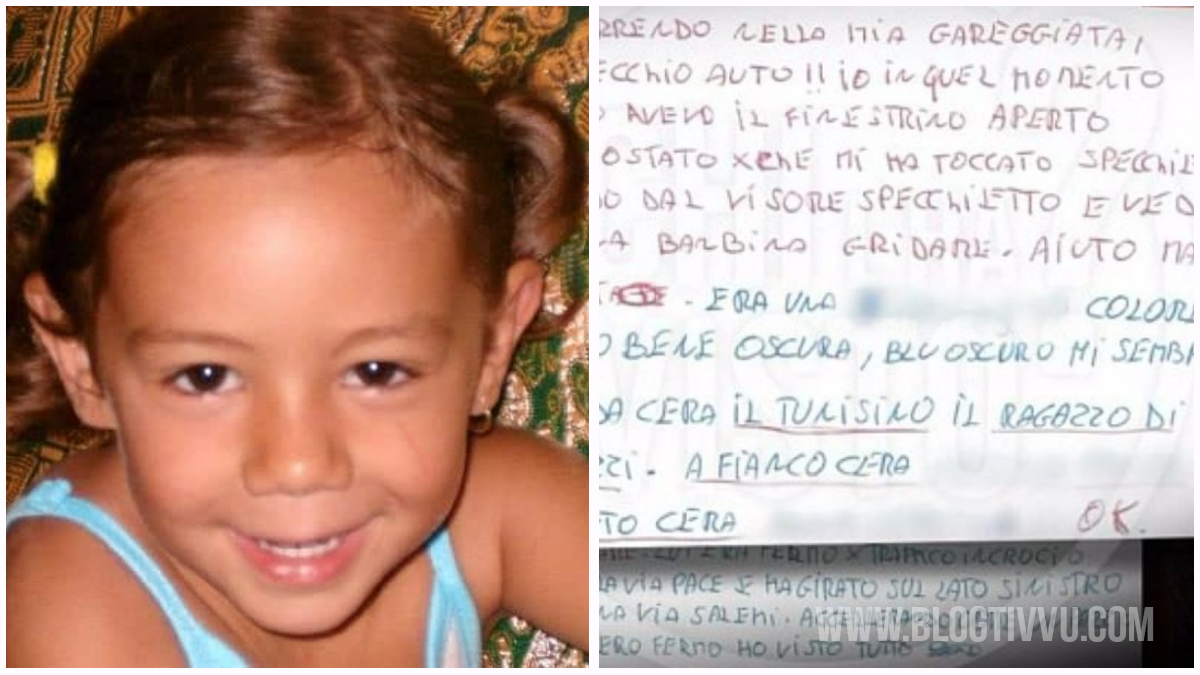 RRENDO NELLA MIA GAREGGIATA,
ECCHIO AUTO!! IO IN QUEL MOMENTO
O AVEVO IL FINESTRINO APERTO
OSTATO XCHE MI HA TOCCATO SPECCHIE
NO DAL VISORE SPECCHIETTO E VED
A BAMBINA GRIDARE. AIUTO MA
. ERA UNA COLORE
O BENE OSCURA, BLU OSCURO MI SEMBR
DA CERA IL TUNISINO IL RAGAZZO DI
ZZI. A FIANCO CERA
TO CERA OK.
ERA FERMO X TRAFFICO INCROCIO
RAVIA PACE E HA GIRATO SUL LATO SINISTRO
NA VIA SALEMI.
WWW.BLOGTIVVU.COM
ERO FERMO HO VISTO TUTTO